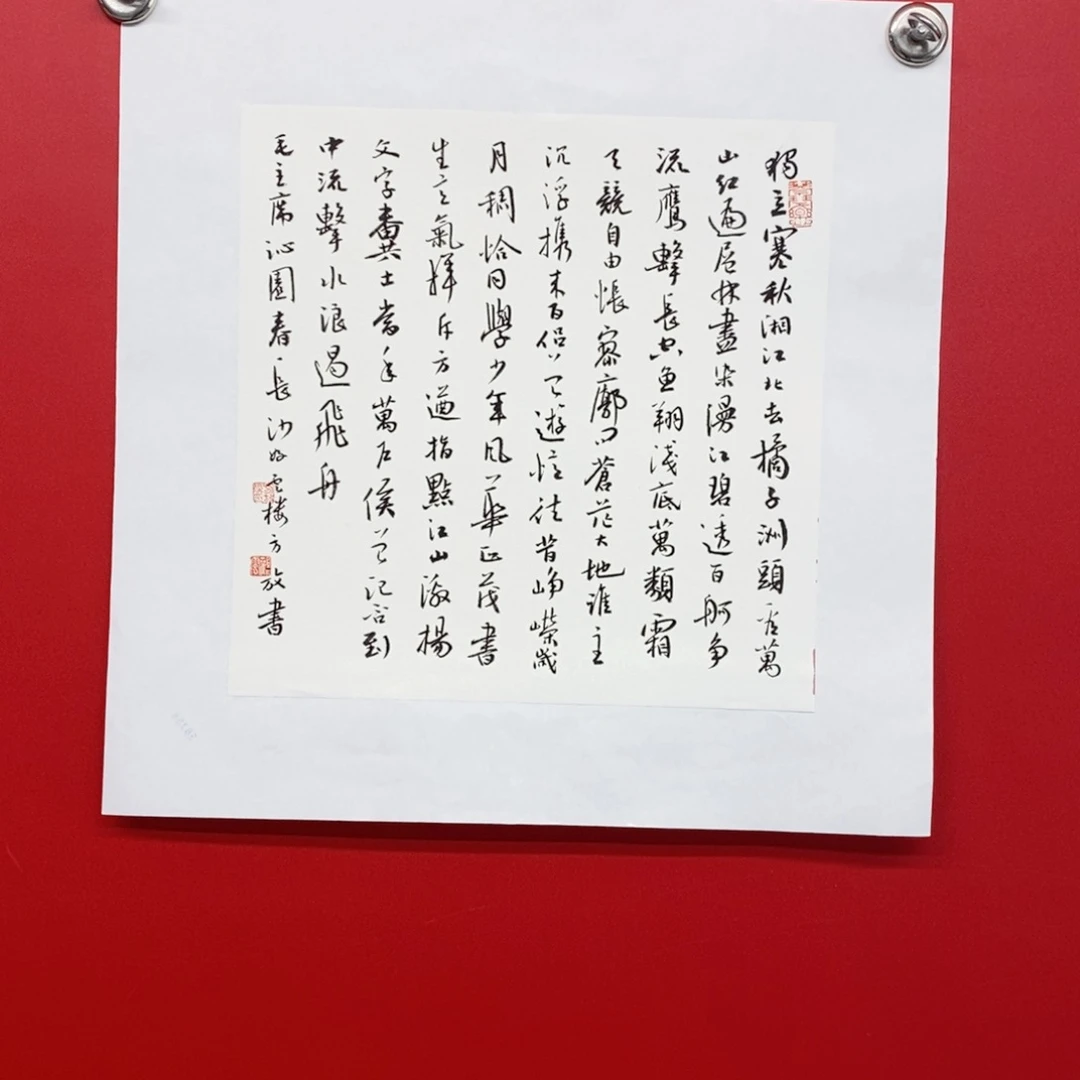 獨立寒秋湘江北去橘子洲頭看萬
山紅遍層林盡染漫江碧透百舸争
流鷹擊長空魚翔淺底萬類霜
天競自由悵寥廓問蒼茫大地誰主
沉浮携來百侣曾遊憶往昔崢嶸歲
月稠恰同學少年風華正茂書
生意氣揮斥方遒指點江山激揚
文字糞土當年萬户侯曾記否到
中流擊水浪遏飛舟
毛主席沁園春長沙 樓方放書